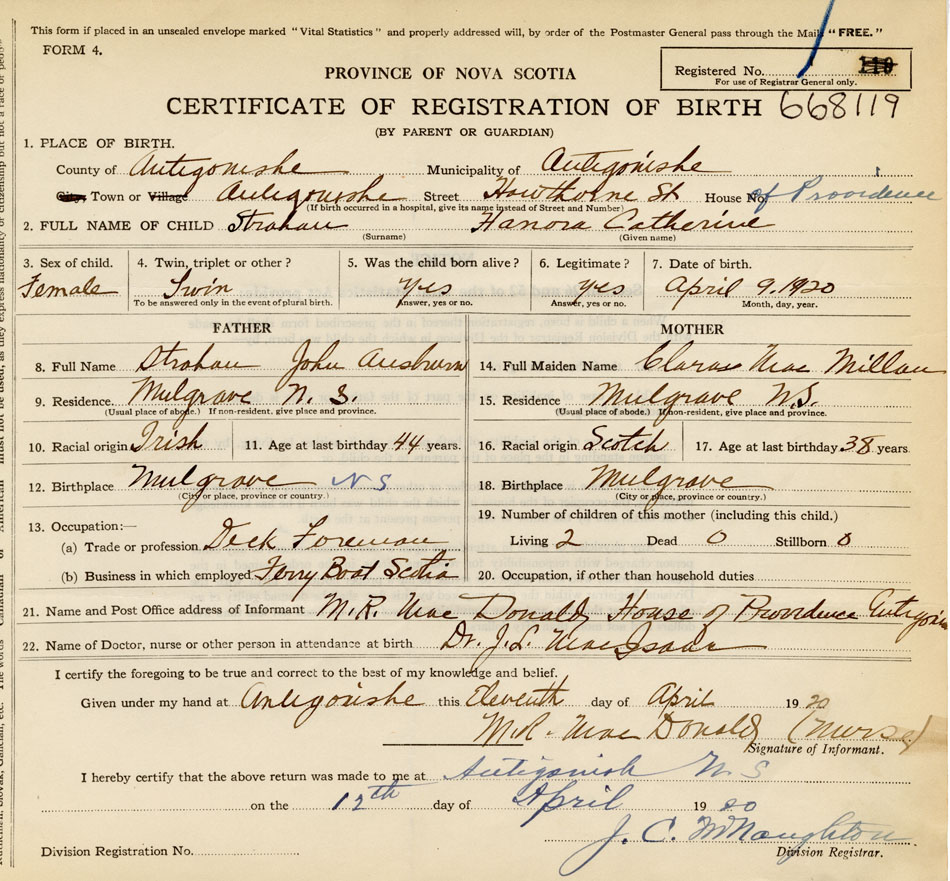 This form if placed in an unsealed envelope marked "Vital Statistics" and properly addressed will, by order of the Postmaster General pass through the Mails "FREE."
FORM 4.
PROVINCE OF NOVA SCOTIA
Registered No. 110
For use of Registrar General only.
CERTIFICATE OF REGISTRATION OF BIRTH 668119
(BY PARENT OR GUARDIAN)
1. PLACE OF BIRTH.
County of Antigonishe Municipality of Antigonishe
City, Town or Village Antigonishe Street Hawthorne St House No. of Providence
(If birth occurred in a hospital, give its name instead of Street and Number)
2. FULL NAME OF CHILD Strahan Hanora Catherine
(Surname) (Given name)
3. Sex of child. 4. Twin, triplet or other? 5. Was the child born alive? 6. Legitimate? 7. Date of birth.
Female Twin Yes Yes April 9. 1920
To be answered only in the event of plural birth. Answer, yes or no. Answer, yes or no. Month, day, year.
FATHER MOTHER
8. Full Name Strahan John 14. Full Maiden Name Mac Millan
9. Residence. Mulgrave N. S. 15. Residence Mulgrave N.S.
(Usual place of abode.) If non-resident, give place and province. (Usual place of abode.) If non-resident, give place and province.
10. Racial origin Irish 11. Age at last birthday 44 years. 16. Racial origin Scotch 17. Age at last birthday 38 years
12. Birthplace Mulgrave N S 18. Birthplace Mulgrave
(City or place, province or country.) (City or place, province or country.)
13. Occupation:— 19. Number of children of this mother (including this child.)
(a) Trade or profession Deck Foreman Living 2 Dead 0 Stillborn 0
(b) Business in which employed Ferry Boat Scotia 20. Occupation, if other than household duties
21. Name and Post Office address of Informant M.R. Mac Donald House of Providence
22. Name of Doctor, nurse or other person in attendance at birth Dr. J.L. MacIsaac
I certify the foregoing to be true and correct to the best of my knowledge and belief.
Given under my hand at Antigonishe this Eleventh day of April 1920
M.R. Mac Donald (Nurse)
Signature of Informant.
I hereby certify that the above return was made to me at Antigonish N. S
on the 12th day of April 1920
J. C. McNaughton
Division Registration No. Division Registrar.